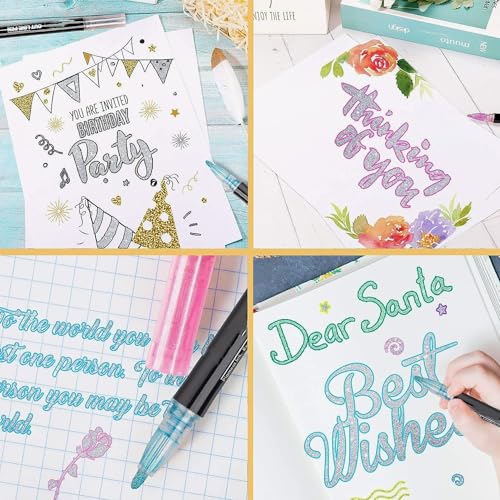 OUT LINE PEN
YOU ARE INVITED
BIRTHDAY
Party
ENJOY THE LIFE
muuto
design
thinking
of you
To the world you
st one person. To
erson you may be
orld.
Dear Santa
Best
Wishe